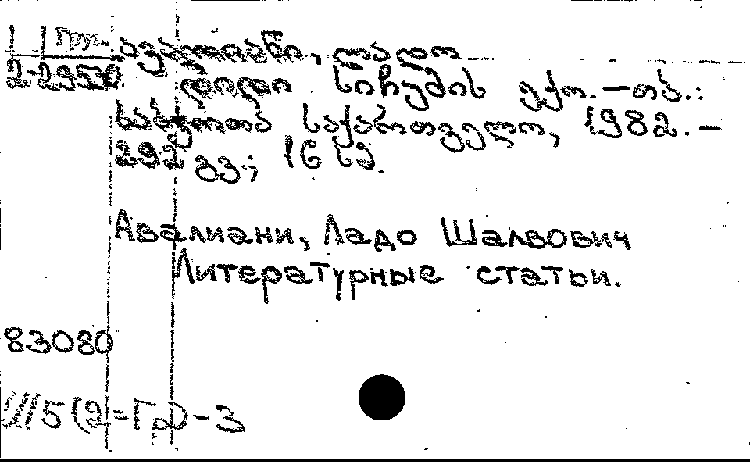 Груз. ავალიანი, ლადო
2-2950 დიდი სიჩუმის ექო.–თბ.:
საბჭოთა საქართველო, 1982.–
292 გვ.; 16 სმ.
Авалиани, Ладо Шалвович
Литературные статьи.
83080
5(2=Гр)-3